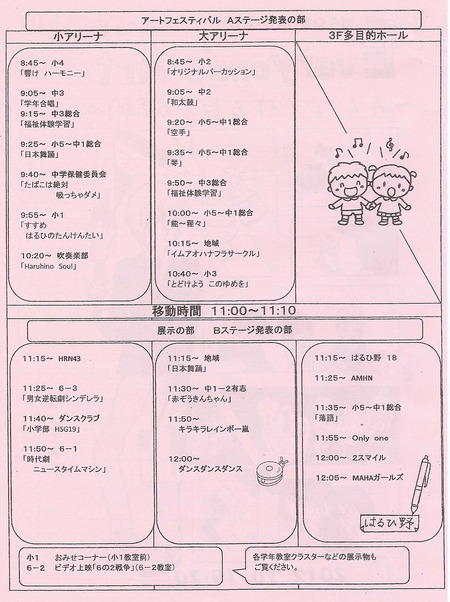 アートフェスティバル　Aステージ発表の部
小アリーナ
8:45～ 小4
「響け ハーモニー」
9:05～ 中3
「学年合唱」
9:15～ 中3総合
「福祉体験学習」
9:25～ 小5～中1総合
「日本舞踊」
9:40～ 中学保健委員会
「たばこは絶対
吸っちゃダメ」
9:55～ 小1
「すすめ
はるひのたんけんたい」
10:20～ 吹奏楽部
「Haruhino Soul」
大アリーナ
8:45～ 小2
「オリジナルパーカッション」
9:05～ 中2
「和太鼓」
9:20～ 小5～中1総合
「空手」
9:35～ 小5～中1総合
「琴」
9:50～ 中3総合
「福祉体験学習」
10:00～ 小5～中1総合
「能～猩々」
10:15～ 地域
「イムアオハナフラサークル」
10:40～ 小3
「とどけよう このゆめを」
3F多目的ホール
移動時間　11:00～11:10
展示の部　Bステージ発表の部
11:15～ HRN43
11:25～ 6－3
「男女逆転劇シンデレラ」
11:40～ ダンスクラブ
「小学部 HSG19」
11:50～ 6－1
「時代劇
ニュースタイムマシン」
11:15～ 地域
「日本舞踊」
11:30～ 中1－2有志
「赤ぞうきんちゃん」
11:50～
キラキラレインボー嵐
12:00～
ダンスダンスダンス
11:15～ はるひ野 18
11:25～ AMHN
11:35～ 小5～中1総合
「落語」
11:55～ Only one
12:00～ 2スマイル
12:05～ MAHAガールズ
はるひ野
小1　おみせコーナー（小1教室前）
6－2　ビデオ上映「6の2戦争」（6－2教室）
各学年教室クラスターなどの展示物も
ご覧ください。